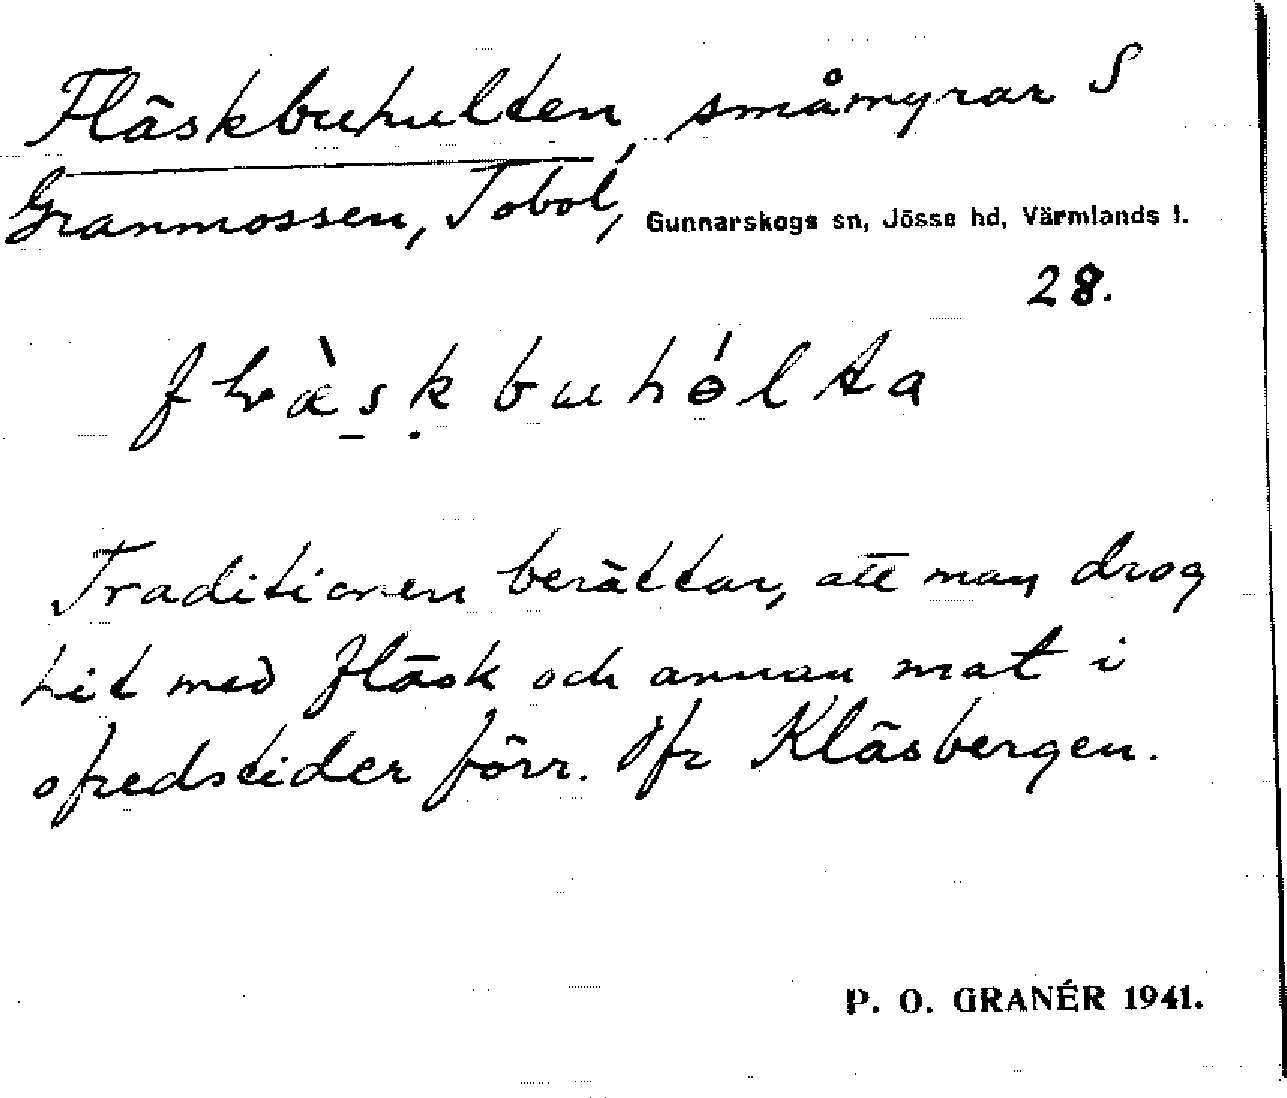 Fläskbuhulten, småmyrar S
Granmossen, Tobol, Gunnarskogs sn, Jösse hd, Värmlands l.
28.
Traditionen berättar, att man drog
hit med fläsk och annan mat i
ofredstider förr. Jfr Kläsbergen.
P. O. GRANÉR 1941.